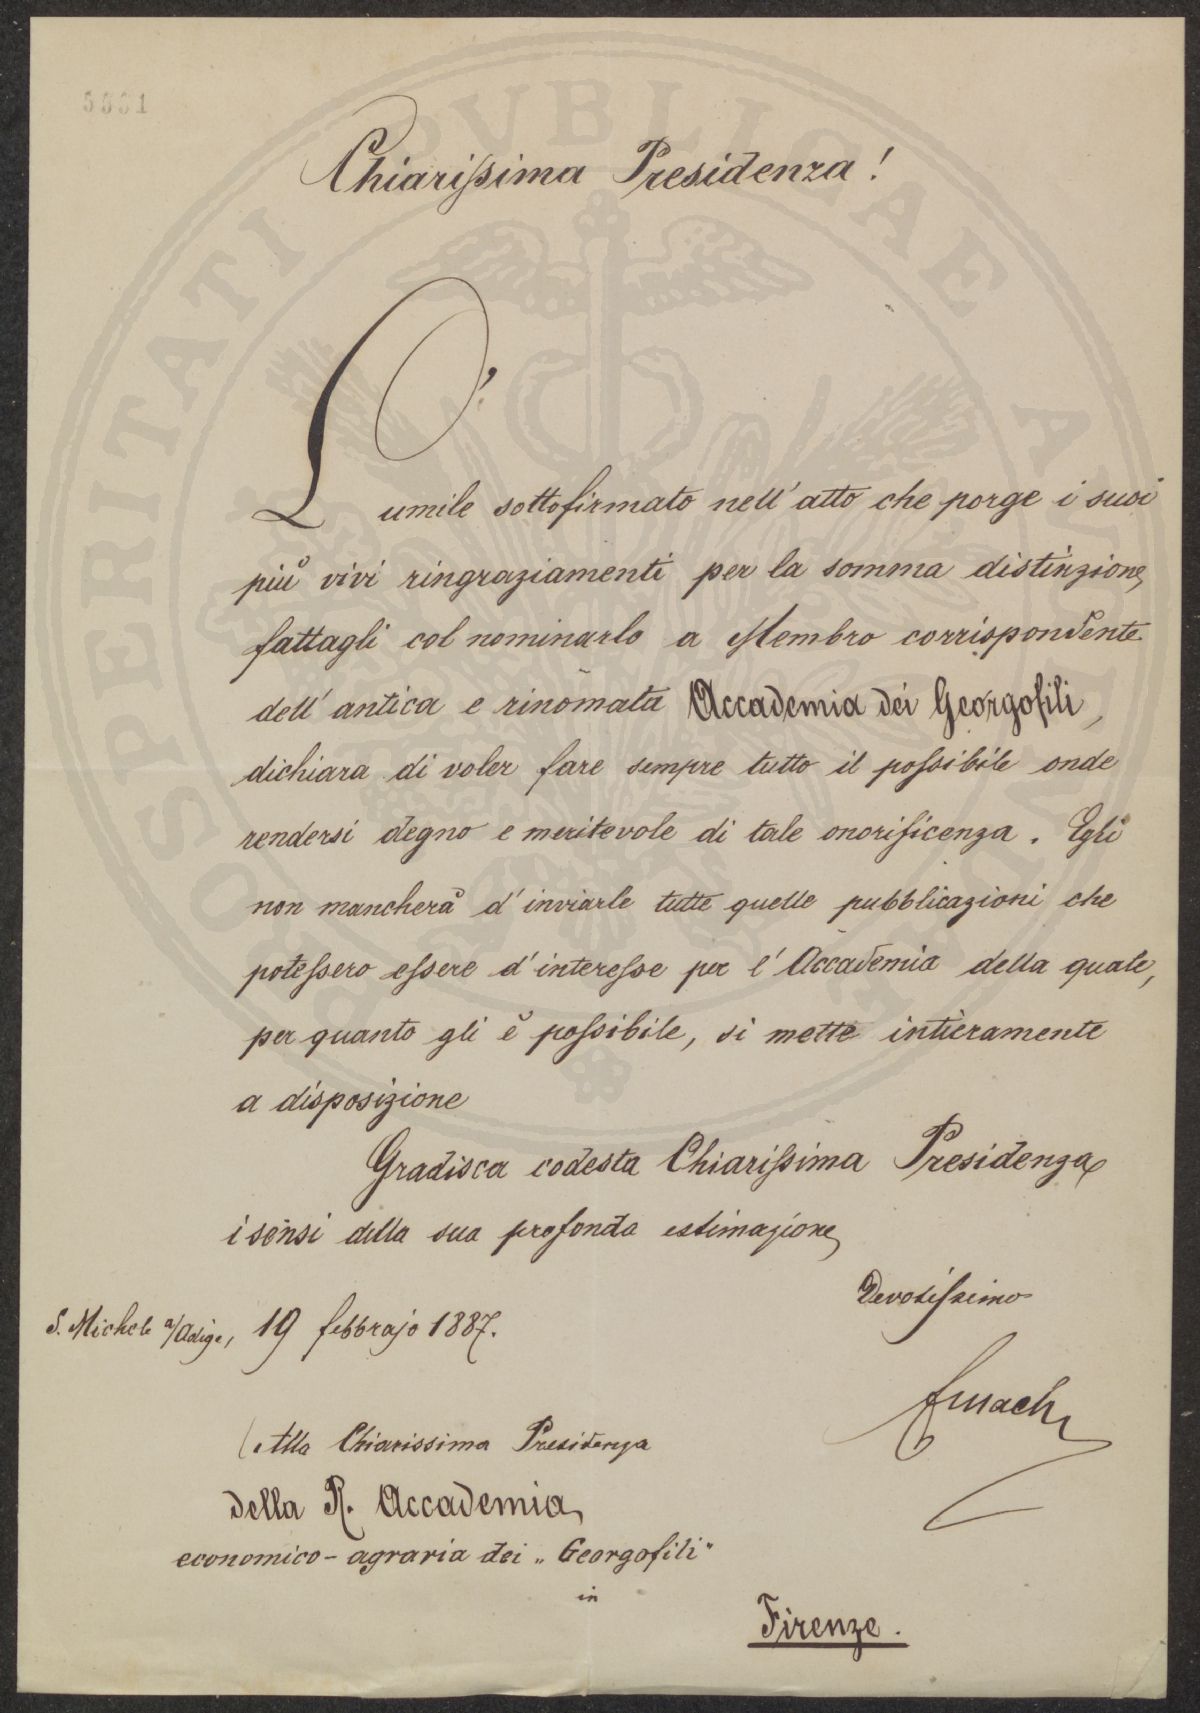 5531
Chiarissima Presidenza!
L'
umile sottofirmato nell'atto che porge i suoi
più vivi ringraziamenti per la somma distinzione
fattagli col nominarlo a Membro corrispondente
dell'antica e rinomata Accademia dei Georgofili,
dichiara di voler fare sempre tutto il possibile onde
rendersi degno e meritevole di tale onorificenza. Egli
non mancherà d'inviarle tutte quelle pubblicazioni che
potessero essere d'interesse per l'Accademia della quale,
per quanto gli è possibile, si mette intieramente
a disposizione
Gradisca codesta Chiarissima Presidenza
i sensi della sua profonda estimazione
Devotissimo
S. Michele a/Adige, 19 febbrajo 1887.
Alla Chiarissima Presidenza
della R. Accademia
economico-agraria dei „Georgofili"
in
Firenze.
PROSPERITATI PVBLICAE AVGENDAE